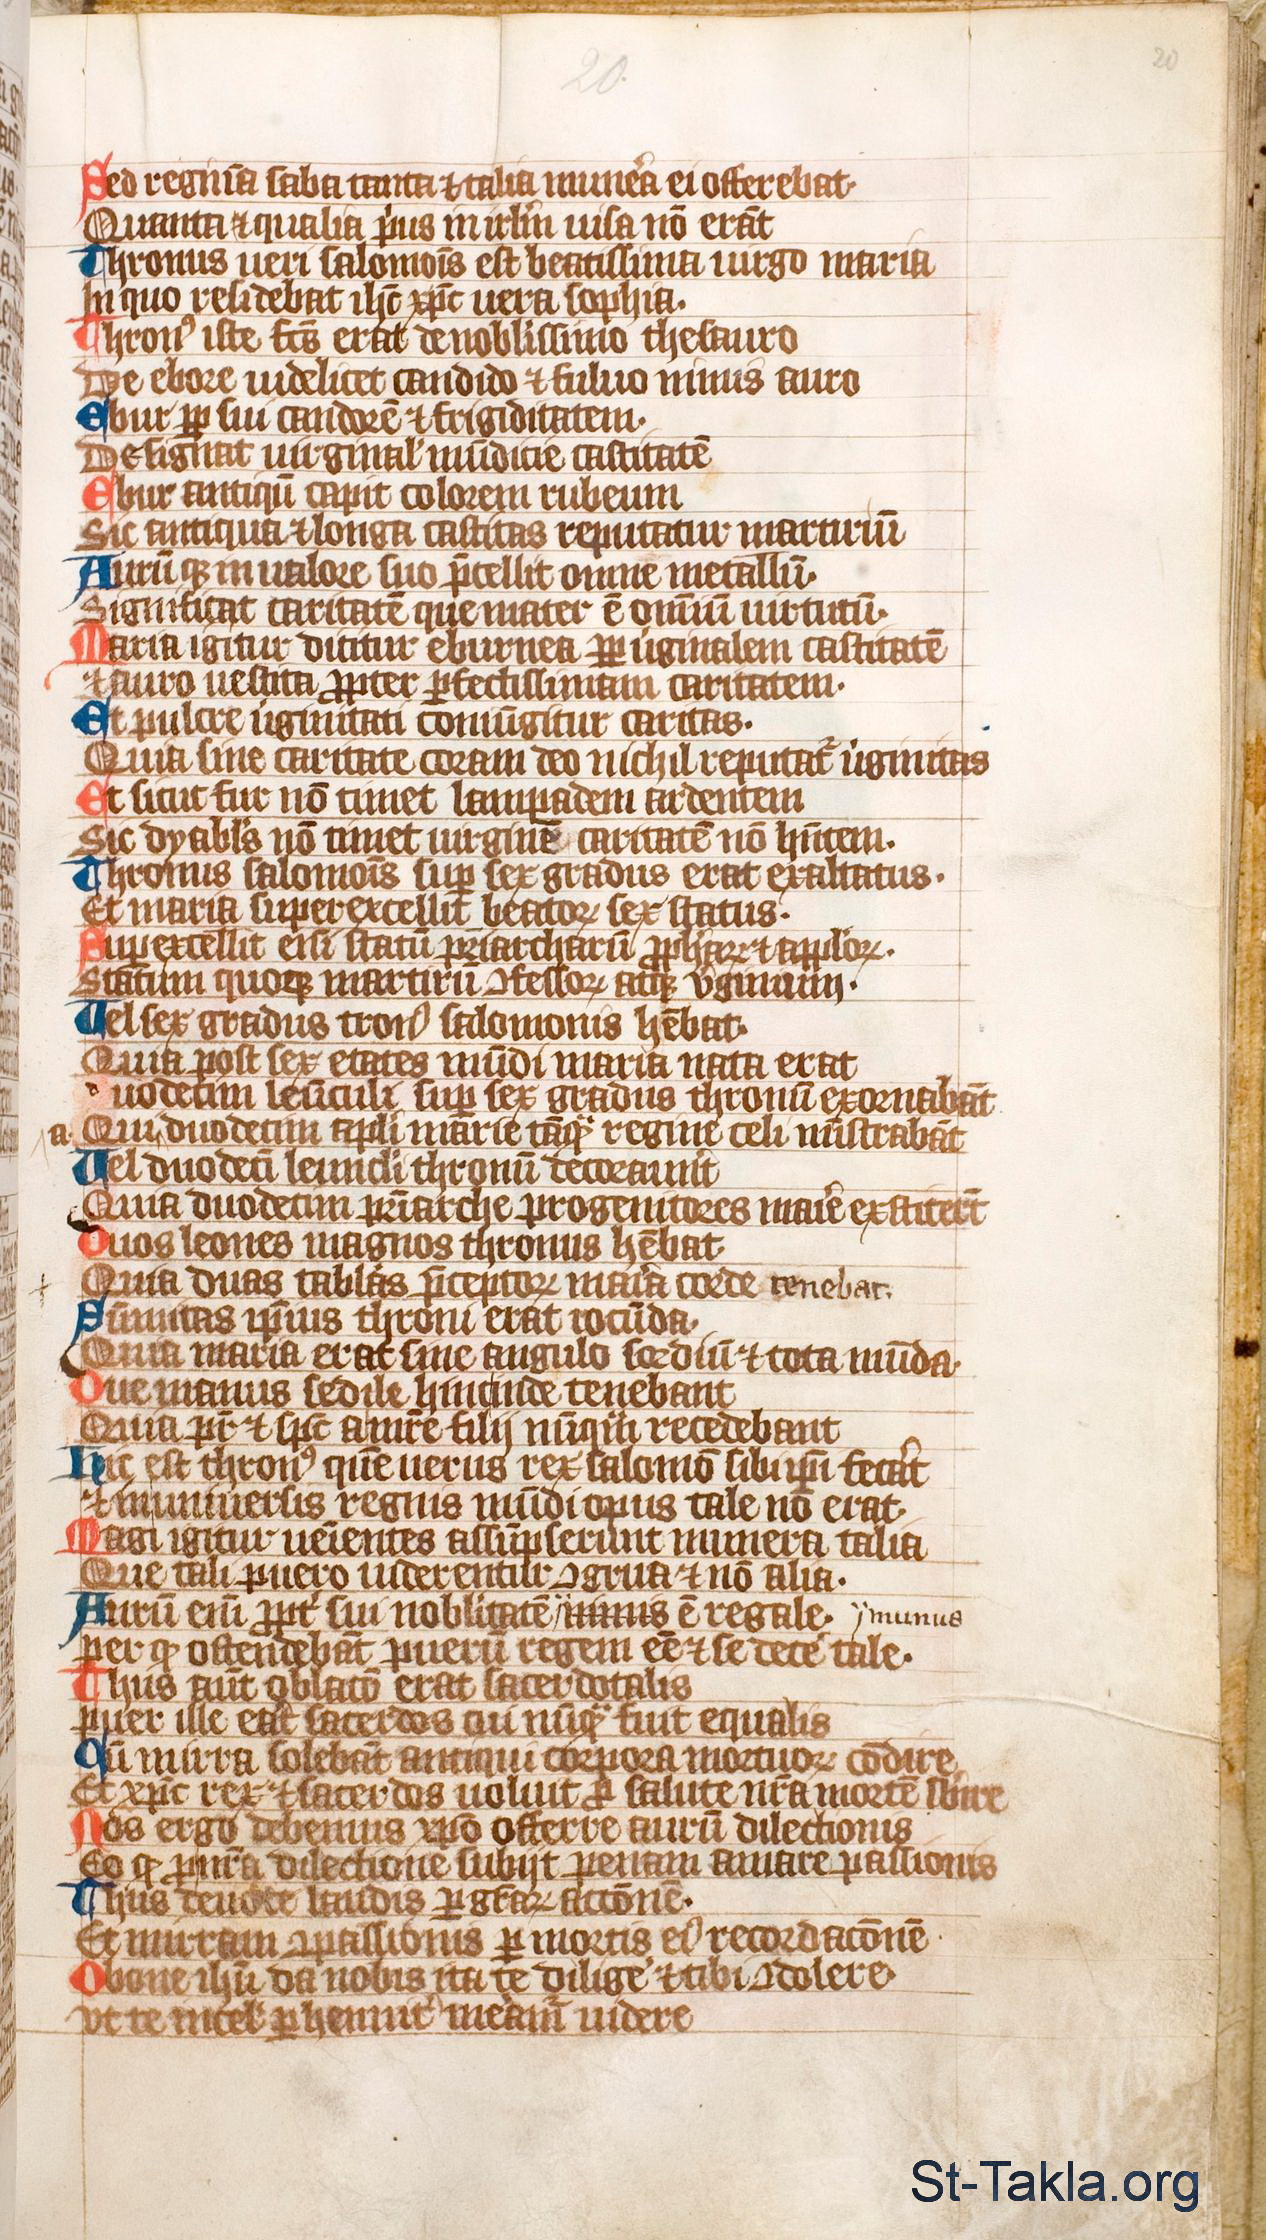 20.
20
Sed regina saba tanta ⁊ talia mune͛a ei offerebat·
Quanta ⁊ qualia p͛us in irlm̄ uisa nō erāt
Thronus ueri salomōis est beatissima uirgo maria
In quo residebat ihc̄ xpc̄ uera sophia.
Thronꝰ iste fc̄s erat de noblissimo thesauro
De ebore uidelicet candido ⁊ fuluo nimis auro
Ebur ꝓp sui candorē ⁊ frigiditatem·
Designat uirginal' mūdicie castitatē
Ebur antiqū capit colorem rubeum
Sic antiqua ⁊ longa castitas reputatur martiriū
Aurū qꝫ in ualore suo p̄cellit omne metallū·
Significat caritatē que mater ē omīum uirtutū·
Maria igitur dicitur eburnea ꝓp u͛ginalem castitatē
⁊ auro uestita ꝓpter ꝑfectissimam caritatem·
Et pulcre u͛ginitati coniūgitur caritas·
Quia sine caritate coram deo nichil reputat᷑ u͛ginitas
Et sicut fur nō timet lampadem ardentem
Sic dyabl's nō timet uirginē caritatē nō hn̄tem·
Thronus salomōis suꝑ sex gradus erat exaltatus·
Et maria superexcellit beatoꝝ sex status·
Suꝑexcellit eīsi statū pr̄iarcharū ꝓph̄aꝝ ⁊ apl'oꝝ·
Statum quoqꝫ martirū ꝯfessoꝝ atqꝫ v͛ginum·
Uel sex gradus tronꝰ salomonis hēbat·
Quia post sex etates mūdi maria nata erat
Duodecim leūculi suꝑ sex gradus thronū exornabāt
a Qui duodecim apl'i marīe tāqᷓ regine celi mīstrabāt
Uel duodecī leunculi thronū decorauīt
Quia duodecim pr̄iarche progenitores mar̄ie extiter̄t
Duos leones magnos thronus hēbat·
Quia duas tablas p̄ceptoꝝ mar͛a corde tenebat·
Sūmitas ipīus throni erat rotūda·
Quia maria erat sine angulo sordiū ⁊ tota mūda·
Due manus sedile hincinde tenebant
Quia pr̄ ⁊ spc̄ a mr̄e filij nūqᷓm recedebant
Hic est thronꝰ quē uerus rex salomō sibi ipī fecat͛
⁊ in uniuersis regnis mūdi opus tale nō erat·
Magi igitur uēientes assūpserunt munera talia
Que tali puero uiderentur ꝯgrua ⁊ nō alia·
Aurū eīm ꝓpt͛ sui noblitatē munus ē regale· munus
Per qͦ ostendebāt puerū regem eē ⁊ se decē tale·
Thus aūt oblatō erat sacerdotalis
Puer ille erat sacerdos cui nūqᷓ fuit equalis
Cū mirra solebāt antiqui corpora mortuoꝝ condire
Et xpc̄ rex ⁊ sacerdos uoluit ꝓ salute nr̄a mortē sbire
Nos ergo debemus xpō offerre aurū dilectionis
Eo qͦ ꝓ nr̄a dilectione subijt penam amare passionis
Thus deuote laudis ꝑ gr̄aꝝ actōnē·
Et mirram ꝯpassionis ꝑ mortis eiꝰ recordacōnē·
O bone ihū da nobis ita te dilige͛ ⁊ tibi ꝯdolere
Vt te in cel' ꝑhenniť meām᷑ uidere
St-Takla.org